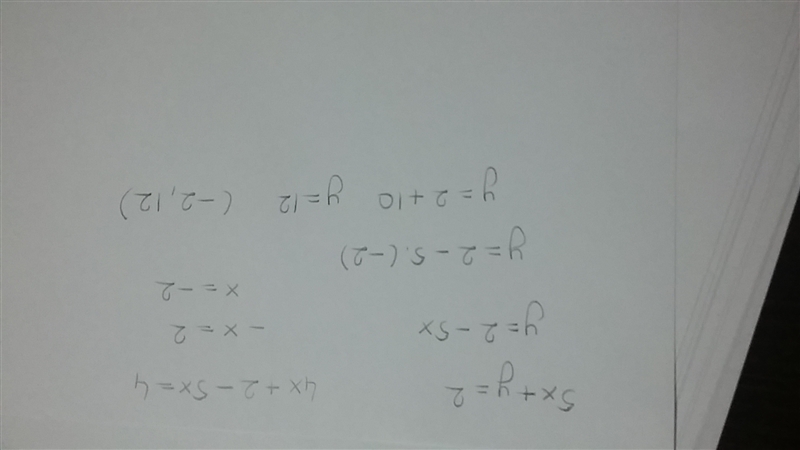 5x + y = 2 4x + 2 - 5x = 4
y = 2 - 5x - x = 2
x = -2
y = 2 - 5.(-2)
y = 2 + 10 y = 12 (-2, 12)